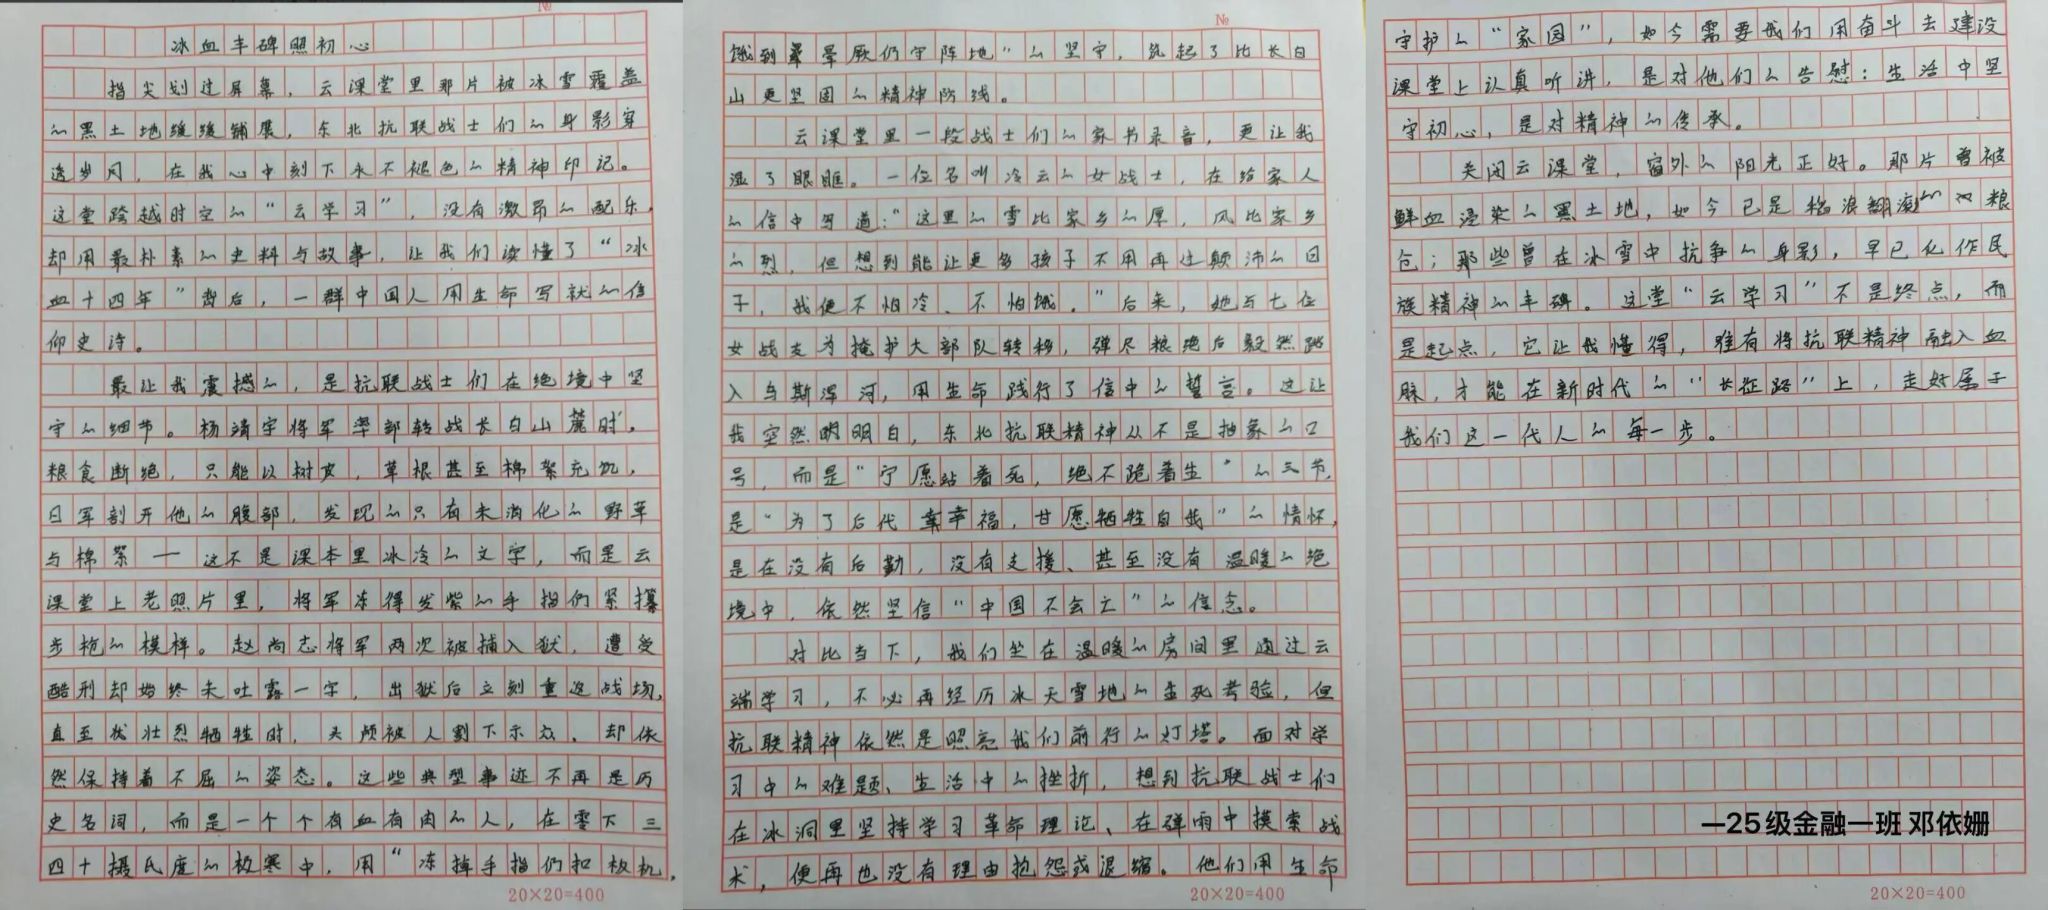 №
冰血丰碑照初心
指尖划过屏幕，云课堂里那片被冰雪覆盖
的黑土地缓缓铺展，东北抗联战士们的身影穿
透岁月，在我心中刻下永不褪色的精神印记。
这堂跨越时空的“云学习”，没有激昂的配乐，
却用最朴素的史料与故事，让我们读懂了“冰
血十四年”背后，一群中国人用生命写就的信
仰史诗。
最让我震撼的，是抗联战士们在绝境中坚
守的细节。杨靖宇将军率部转战长白山麓时，
粮食断绝，只能以树皮，草根甚至棉絮充饥，
日军剖开他的腹部，发现的只有未消化的野草
与棉絮一这不是课本里冰冷的文字，而是云
课堂上老照片里，将军冻得发紫的手指们紧攥
步枪的模样。赵尚志将军两次被捕入狱，遭受
酷刑却始终未吐露一字，出狱后立刻重返战场，
直至壮烈牺牲时，头颅被人割下示众、却依
然保持着不屈的姿态。这些典型事迹不再是历
史名词，而是一个个有血有肉的人，在零下三
四十摄氏度的极寒中，用“冻掉手指仍扣板机，
20×20=400
№
饿到晕厥仍守阵地”的坚守，筑起了比长白
山更坚固的精神防线。
云课堂里一段战士们的家书录音，更让我
湿了眼眶。一位名叫冷云的女战士，在给家人
的信中写道：“这里的雪比家乡的厚，风比家乡
的烈，但想到能让更多孩子不用再过颠沛的日
子，我便不怕冷、不怕饿。”后来，她与七位
女战友为掩护大部队转移，弹尽粮绝后毅然跳
入乌斯浑河，用生命践行了信中的誓言。这让
我突然明白，东北抗联精神从不是抽象的口
号，而是“宁愿站着死，绝不跪着生”的气节，
是“为了后代幸福，甘愿牺牲自我”的情怀，
是在没有后勤，没有支援、甚至没有温暖的绝
境中，依然坚信“中国不会亡”的信念。
对比当下，我们坐在温暖的房间里通过云
端学习，不必再经历冰天雪地的生死考验，但
抗联精神依然是照亮我们前行的灯塔。面对学
习中的难题、生活中的挫折，想到抗联战士们
在冰洞里坚持学习革命理论、在弹雨中摸索战
术，便再也没有理由抱怨或退缩。他们用生命
20×20=400
守护的“家园”，如今需要我们用奋斗去建设
课堂上认真听讲，是对他们的告慰；生活中坚
守初心，是对精神的传承。
关闭云课堂，窗外的阳光正好。那片曾被
鲜血浸染的黑土地，如今已是稻浪翻滚的粮
仓；那些曾在冰雪中抗争的身影，早已化作民
族精神的丰碑。这堂“云学习”不是终点，而
是起点，它让我懂得，唯有将抗联精神融入血
脉，才能在新时代的“长征路”上，走好属于
我们这一代人的每一步。
—25级金融一班 邓依姗
20×20=400